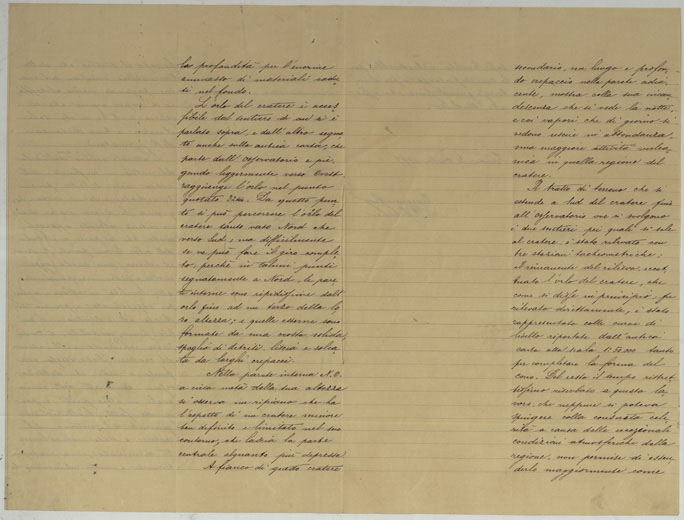 la profondità per l'enorme
ammasso di materiali cadu-
ti nel fondo.
L'orlo del cratere è acces-
sibile dal sentiere di cui si è
parlato sopra, e dall'altro segna-
to anche sulla antica carta, che
parte dall'Osservatorio e pie-
gando leggermente verso Ovest
raggiunge l'orlo nel punto
quotato. Da questo pun-
to si può percorrere l'orlo del
cratere tanto verso Nord che
verso Sud; ma difficilmente
se ne può fare il giro comple-
to, perchè in taluni punti
segnatamente a Nord, le pare-
ti interne sono ripidissime dall'
orlo fino ad un terzo della lo-
ro altezza; e quelle esterne sono
formate da una roccia solida,
spoglia di detriti, liscia e solca-
ta da larghi crepacci.
Nella parete interna N.E.
a circa metà della sua altezza
si osserva un ripiano che ha
l'aspetto di un cratere minore
ben definito e limitato nel suo
contorno, che lascia la parte
centrale alquanto più depressa.
A fianco di questo cratere
secondario, un lungo e profon-
do crepaccio nella parete adia-
cente, mostra colla sua incan-
descenza che si vede la notte,
e coi vapori che di giorno si
vedono uscire in abbondanza,
una maggiore attività vulca-
nica in quella regione del
cratere.
Il tratto di terreno che si
estende a Sud del cratere fino
all'Osservatorio ove si svolgono
i due sentieri pei quali si sale
al cratere, è stato rilevato con
tre stazioni tacheometriche;
il rimanente del rilievo, eccet-
tuato l'orlo del cratere, che
come si disse in principio, fu
rilevato direttamente, è stato
rappresentato colle curve di
livello riportate dall'antica
carta alla scala 1:50.000 tanto
per completare la forma del
cono. Del resto il tempo ristret-
tissimo a questo la-
voro, che neppure si poteva
spingere colla consueta cele-
rità a causa delle eccezionali
condizioni atmosferiche della
regione, non permise di esten-
derlo maggiormente come